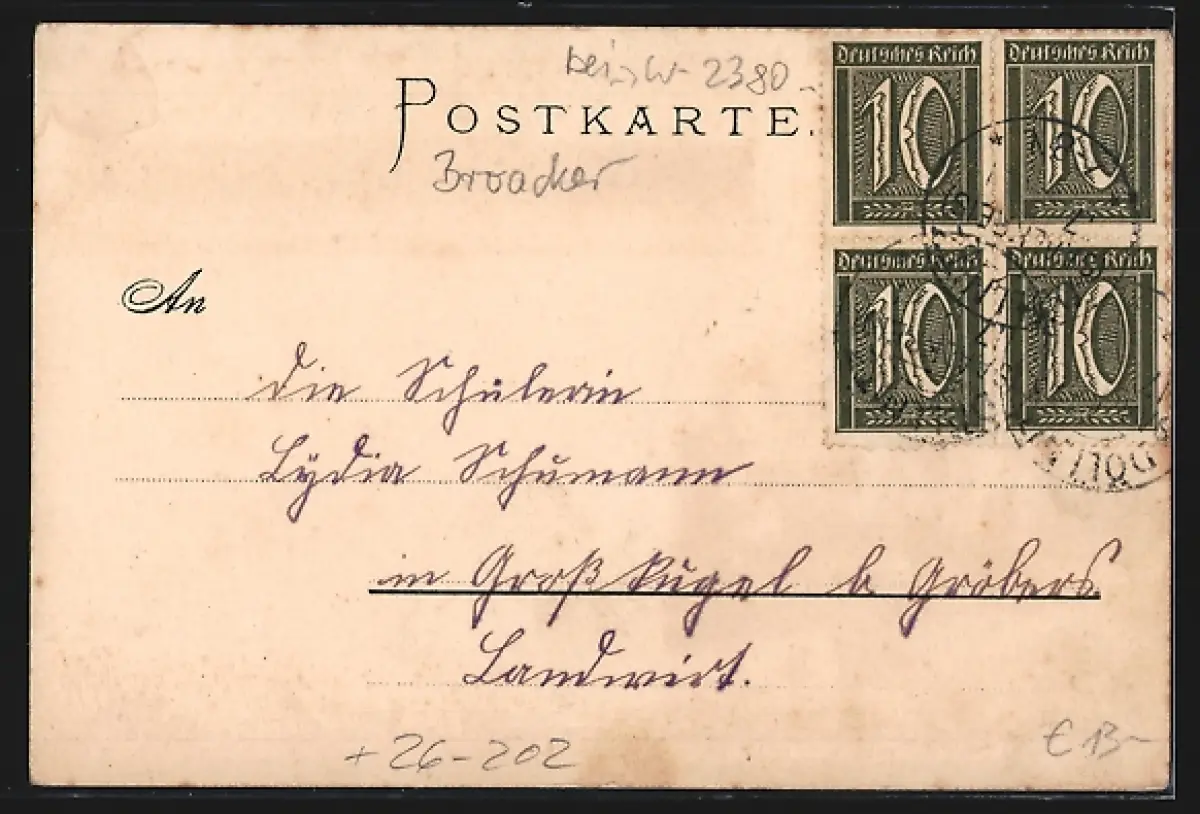 2380-
POSTKARTE.
Broacker
Deutsches Reich
10
Deutsches Reich
10
Deutsches Reich
10
Deutsches Reich
10
An
die Schülerin
Lydia Schumann
in Großkugel b Gröbers
Landwirt.
+26-202
€ 13-